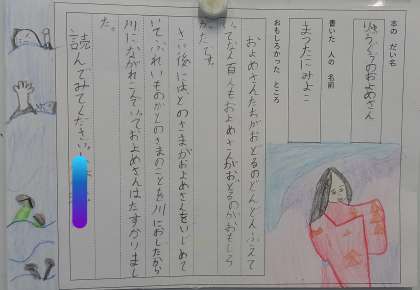 本の だい名
りゅうぐうのおよめさん
書いた人の 名前
まつたにみよこ
おもしろかった ところ
およめさんたちがおどるのどんどんふえて
てなん百人もおよめさんがおどるのがおもしろ
かたです。
さい後にはとのさまがおよめさんをいじめて
いてふれいものがとのさまのことを川におしたから
川にながれこんでいておよめさんはたすかりまし
た。
読んでみてください。